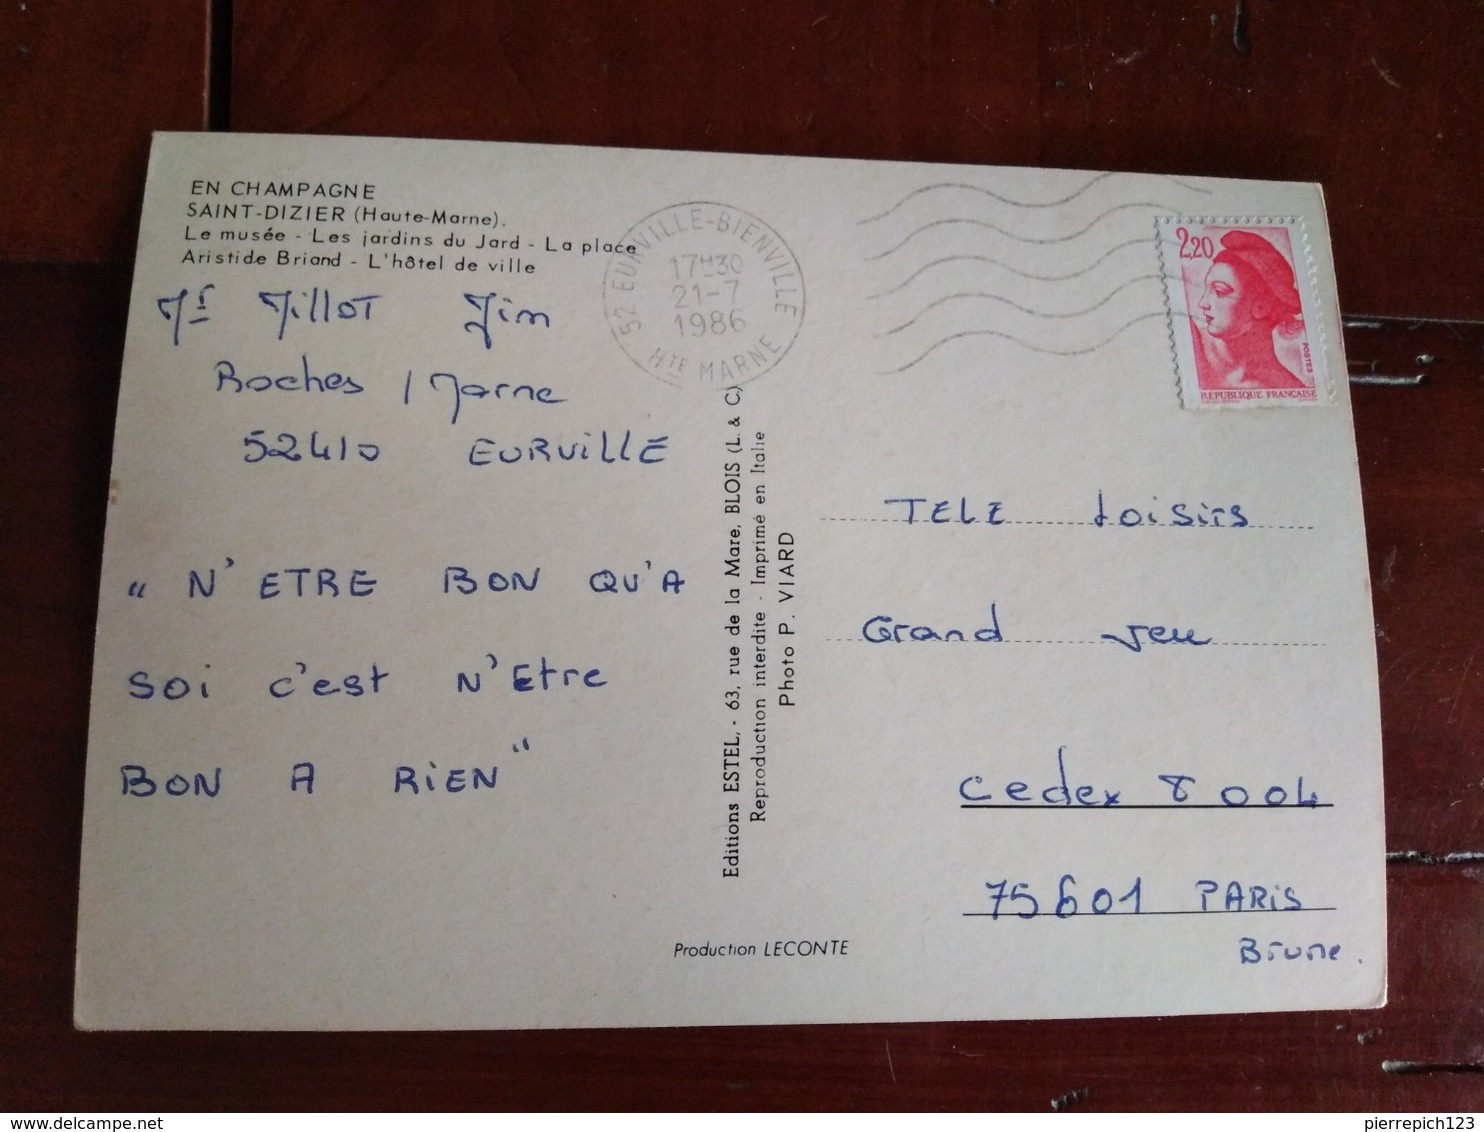 EN CHAMPAGNE
SAINT-DIZIER (Haute-Marne).
Le musée - Les jardins du Jard - La place
Aristide Briand - L'hôtel de ville
Mr Millot Jim
Roches / Marne
52410 EURVILLE
" N'ETRE BON QU'A
SOI C'est N'Etre
BON A RIEN "
52 EURVILLE-BIENVILLE
17H30
21-7
1986
HTE MARNE
2,20
POSTES
REPUBLIQUE FRANCAISE
Editions ESTEL, - 63, rue de la Mare, BLOIS (L. & C.)
Reproduction interdite - Imprimé en Italie
Photo P. VIARD
TELE Loisirs
Grand Jeu
Cedex 8004
75601 PARIS
Brune.
Production LECONTE
pierrepich123